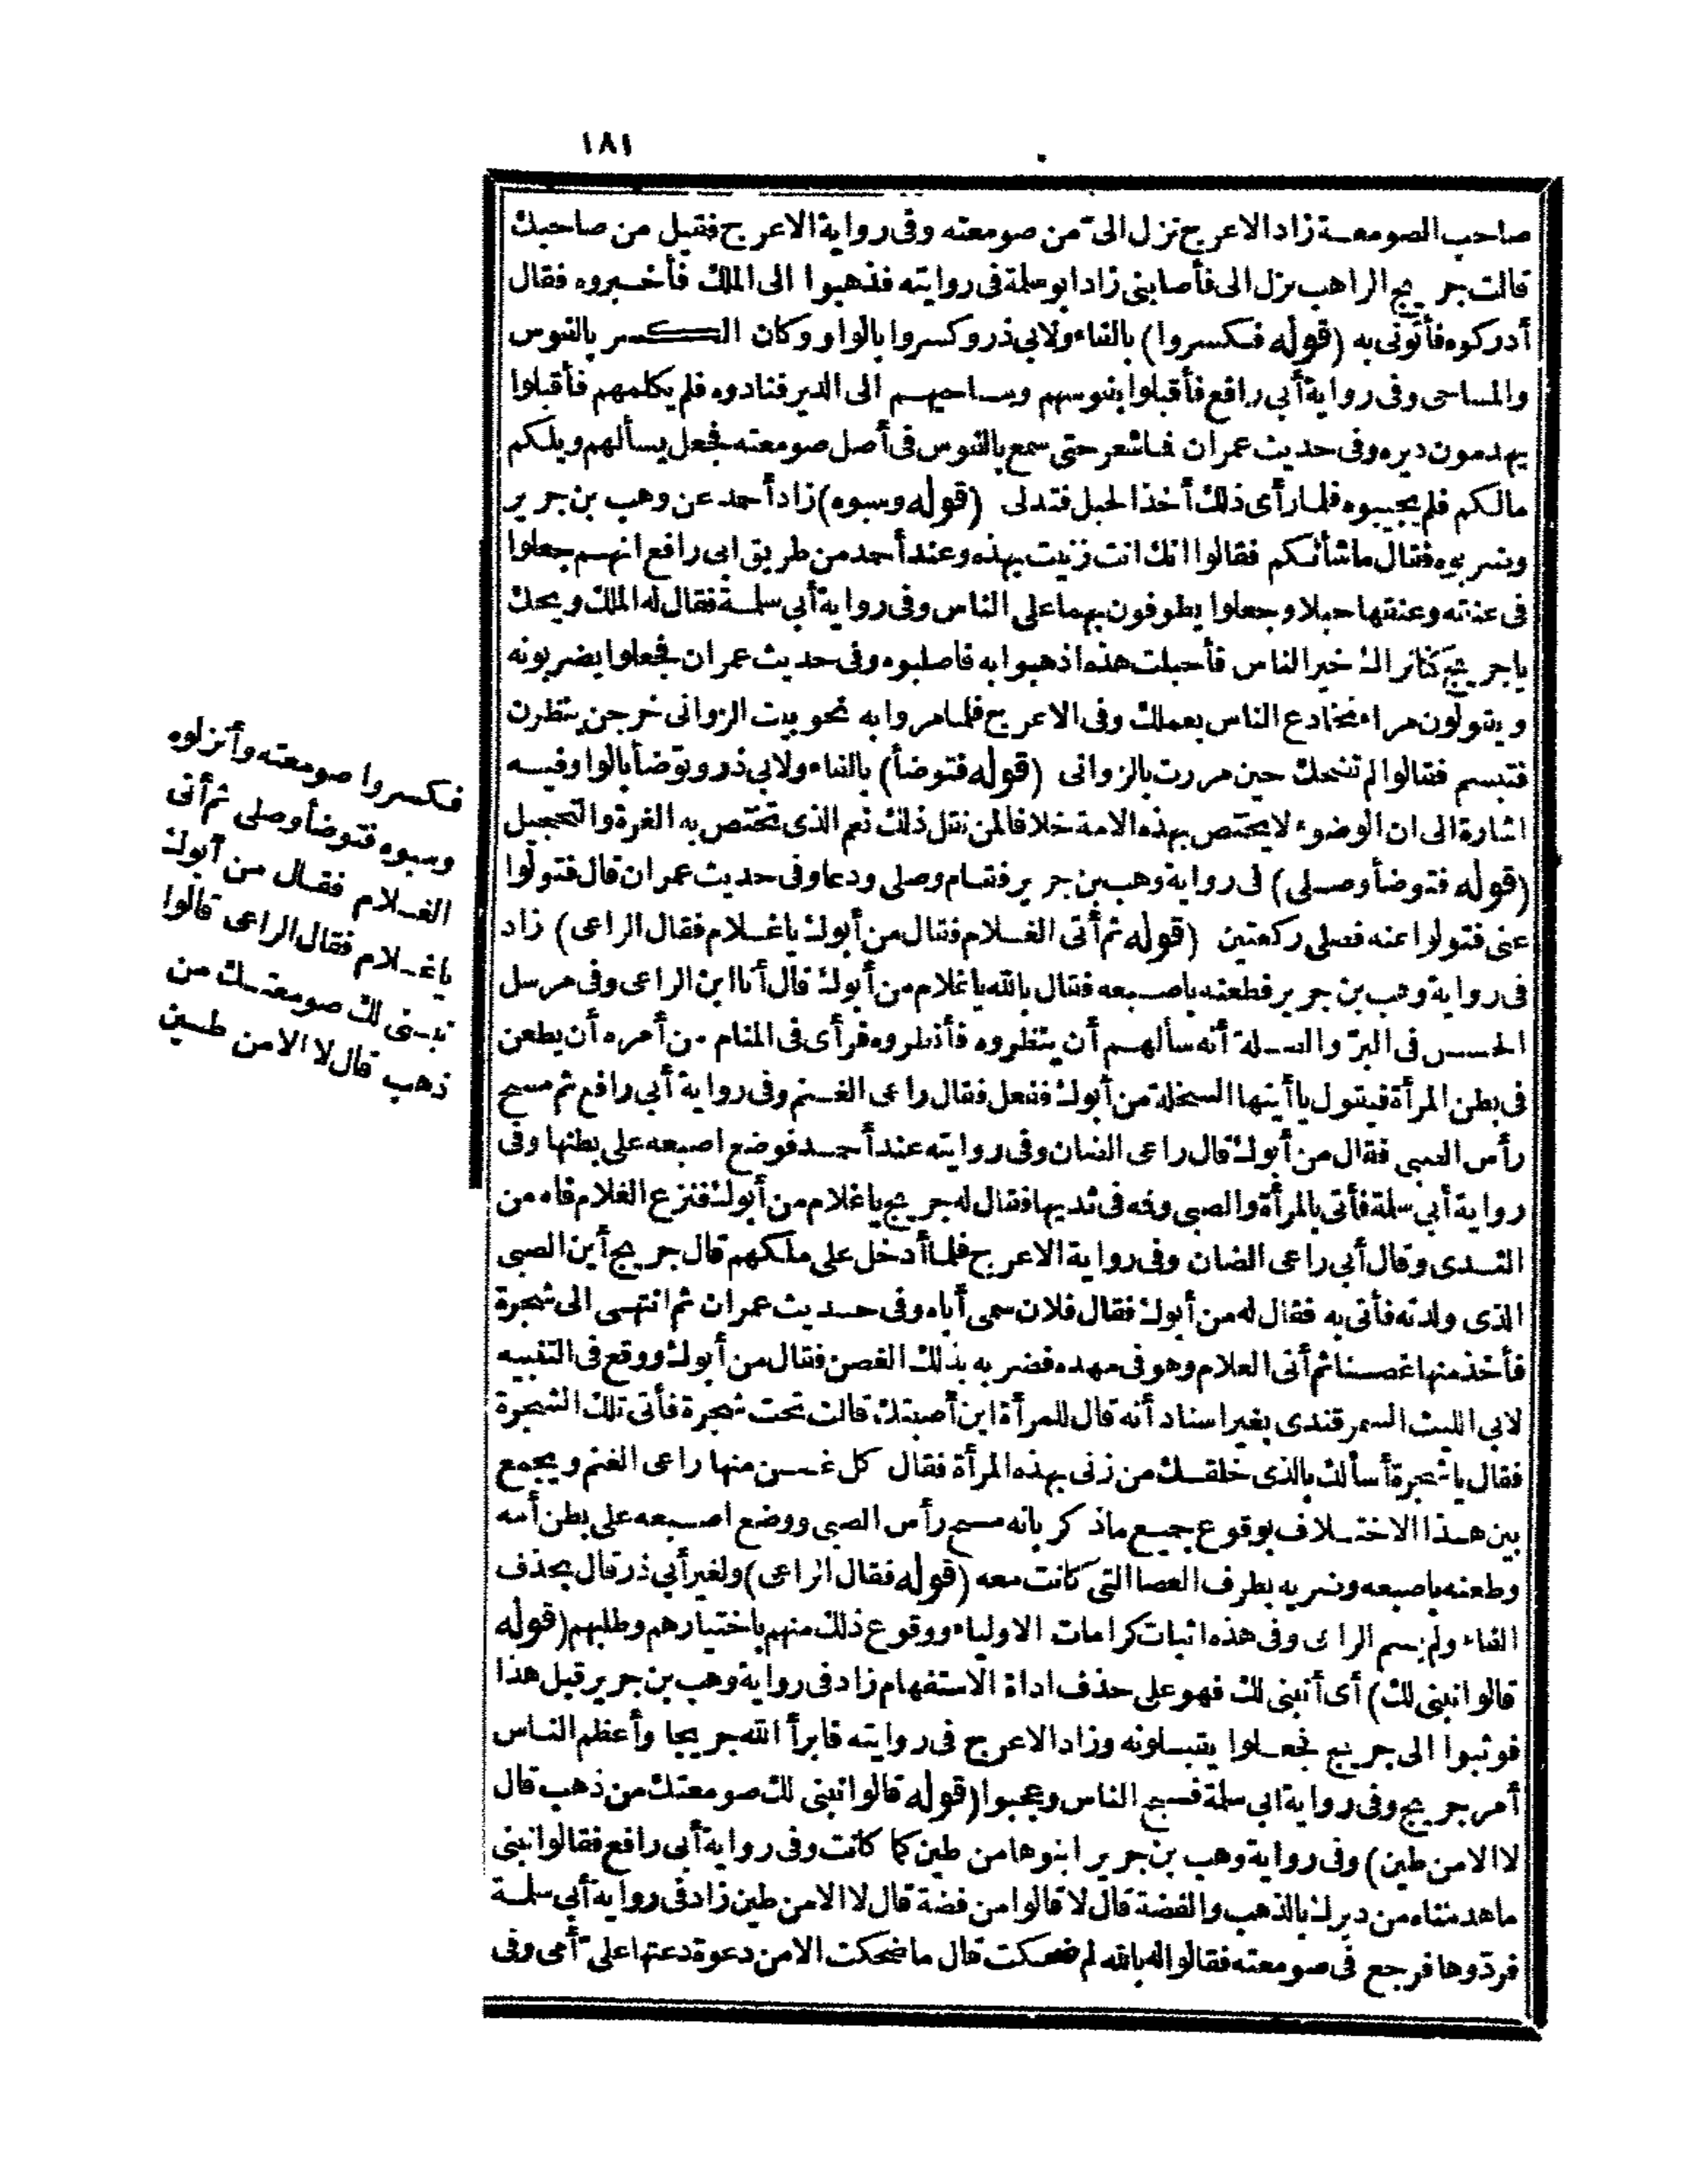 ١٨١
صاحب الصومعة زاد الاعرج نزل الىّ من صومعته وفى رواية الاعرج فقيل من صاحبك
قالت جريج الراهب نزل الى فأصابنى زاد ابو سلمة فى روايته فذهبوا الى الملك فأخبروه فقال
أدركوه فأتونى به (قوله فكسروا) بالفاء ولابى ذر وكسروا بالواو وكان الكسر بالفوس
والمساحى وفى رواية أبى رافع فأقبلوا بفوسهم ومساحيهم الى الدير فنادوه فلم يكلمهم فأقبلوا
يهدمون ديره وفى حديث عمران فما شعر حتى سمع بالفوس فى أصل صومعته فجعل يسألهم ويلكم
مالكم فلم يجيبوه فلما رأى ذلك أخذ الحبل فتدلى (قوله وسبوه) زاد أحمد عن وهب بن جرير
وضربوه فقال ما شأنكم فقالوا انك انت زنيت بهذه وعند أحمد من طريق ابى رافع انهم جعلوا
فى عنقه وعنقها حبلا وجعلوا يطوفون بهما على الناس وفى رواية أبى سلمة فقال له الملك ويحك
يا جريج كنا نراك خير الناس فأحبلت هذه اذهبوا به فاصلبوه وفى حديث عمران فجعلوا يضربونه
ويقولون مراء تخادع الناس بعملك وفى الاعرج فلما مروا به نحو بيت الزوانى خرجن ينظرن
فتبسم فقالوا لم تضحك حين مررت بالزوانى (قوله فتوضأ) بالفاء ولابى ذر وتوضأ بالواو وفيه
اشارة الى ان الوضوء لا يختص بهذه الامة خلافا لمن نقل ذلك نعم الذى تختص به الغرة والتحجيل
(قوله فتوضأ وصلى) فى رواية وهب بن جرير فقام وصلى ودعا وفى حديث عمران قال فتولوا
عنى فتولوا عنه فصلى ركعتين (قوله ثم أتى الغلام فقال من أبوك يا غلام فقال الراعى) زاد
فى رواية وهب بن جرير فطعنه باصبعه فقال بالله يا غلام من أبوك قال أنا ابن الراعى وفى مرسل
الحسن فى البرّ والصلة أنه سألهم أن ينظروه فأنظروه فرأى فى المنام من أمره أن يطعن
فى بطن المرأة فيقول يا أيتها السخلة من أبوك ففعل فقال راعى الغنم وفى رواية أبى رافع ثم مسح
رأس الصبى فقال من أبوك قال راعى الضان وفى روايته عند أحمد فوضع اصبعه على بطنها وفى
رواية أبى سلمة فأتى بالمرأة والصبى وفمه فى ثديها فقال له جريج يا غلام من أبوك فنزع الغلام فاه من
الثدى وقال أبى راعى الضان وفى رواية الاعرج فلما أدخل على ملكهم قال جريج أين الصبى
الذى ولدته فأتى به فقال له من أبوك فقال فلان سمى أباه وفى حديث عمران ثم انتهى الى شجرة
فأخذ منها غصنا ثم أتى الغلام وهو فى مهده فضربه بذلك الغصن فقال من أبوك ووقع فى التنبيه
لابى الليث السمرقندى بغير اسناد أنه قال للمرأة اين أصبتك قالت تحت شجرة فأتى تلك الشجرة
فقال يا شجرة أسألك بالذى خلقك من زنى بهذه المرأة فقال كل غصن منها راعى الغنم ويجمع
بين هذا الاختلاف بوقوع جميع ما ذكر بانه مسح رأس الصبى ووضع اصبعه على بطن أمه
وطعنه باصبعه وضربه بطرف العصا التى كانت معه (قوله فقال الراعى) ولغير أبى ذر قال بحذف
الفاء ولم يسم الراعى وفى هذه اثبات كرامات الاولياء ووقوع ذلك منهم باختيارهم وطلبهم (قوله
قالوا نبنى لك) أى أنبنى لك فهو على حذف اداة الاستفهام زاد فى رواية وهب بن جرير قبل هذا
فوثبوا الى جريج فجعلوا يقبلونه وزاد الاعرج فى روايته فابرأ الله جريجا وأعظم الناس
أمر جريج وفى رواية ابى سلمة فسبح الناس وعجبوا (قوله قالوا نبنى لك صومعتك من ذهب قال
لا الا من طين) وفى رواية وهب بن جرير ابنوها من طين كما كانت وفى رواية أبى رافع فقالوا نبنى
ما هدمناه من ديرك بالذهب والفضة قال لا قالوا من فضة قال لا الا من طين زاد فى رواية أبى سلمة
فردّوها فرجع فى صومعته فقالوا له بالله لم ضحكت قال ما ضحكت الا من دعوة دعتها علىّ أمى وفى
فكسروا صومعته وأنزلوه
وسبوه فتوضأ وصلى ثم أتى
الغلام فقال من أبوك
يا غلام فقال الراعى قالوا
نبنى لك صومعتك من
ذهب قال لا الا من طين